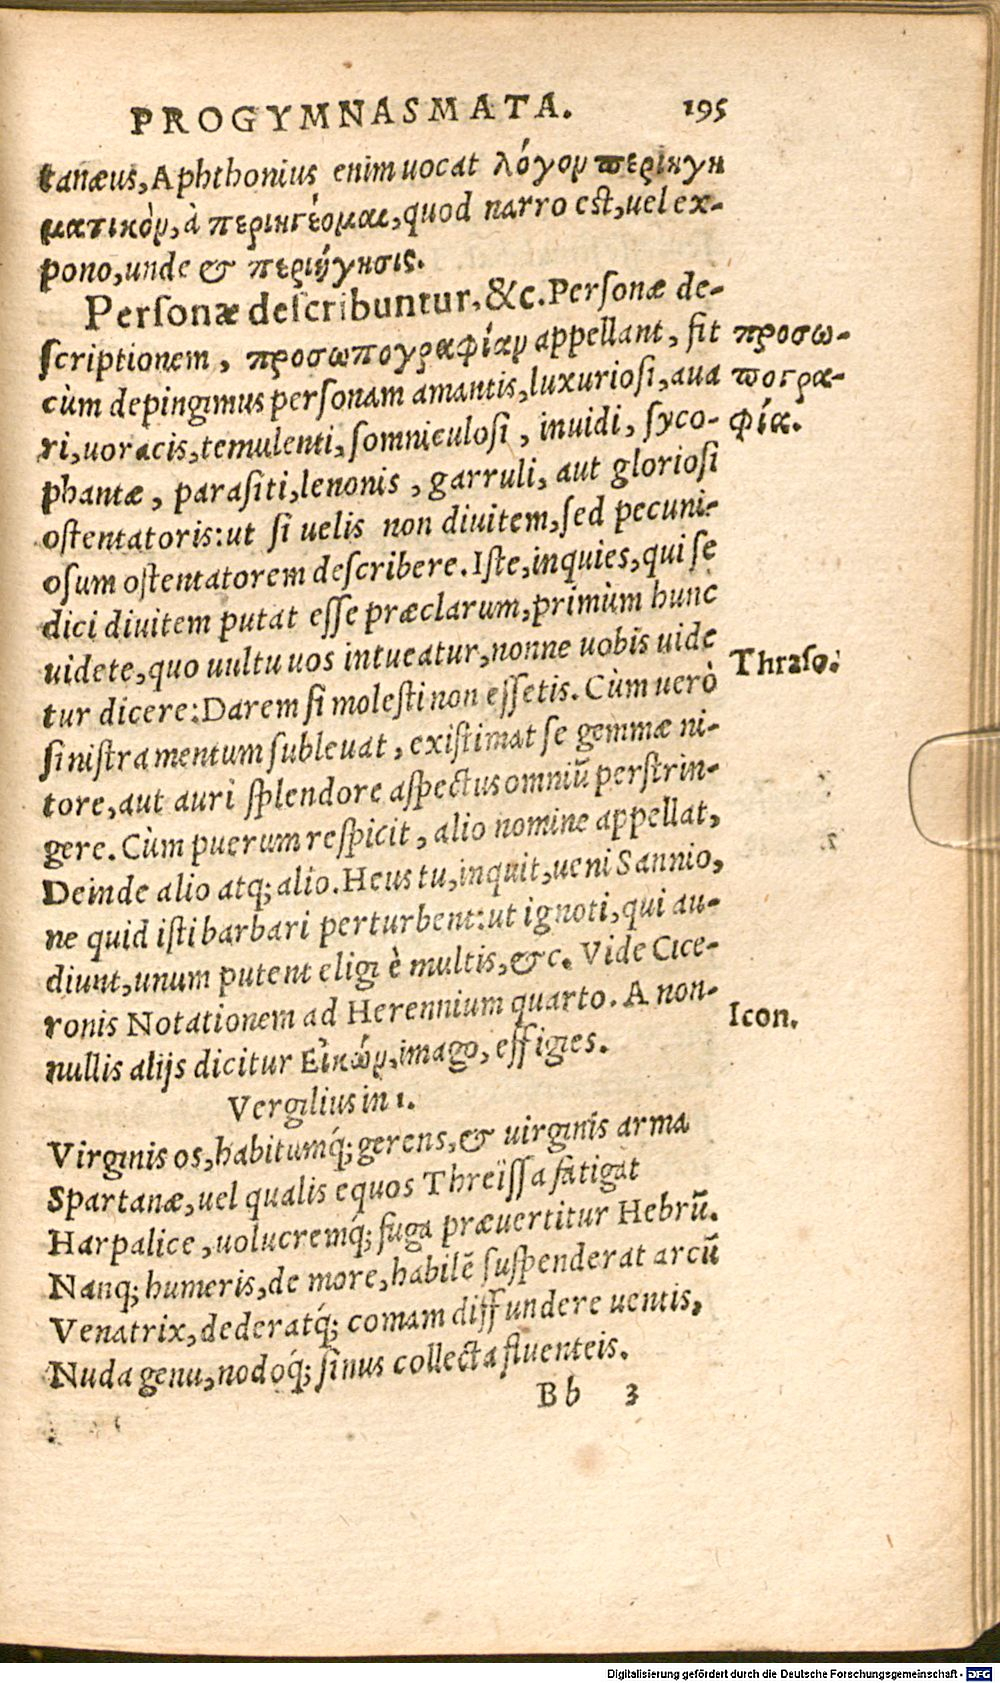 PROGYMNASMATA. 195
tanæus, Aphthonius enim uocat λόγον περιηγη
ματικὸν, à περιηγέομαι, quod narro est, uel ex-
pono, unde & περιήγησις.
Personæ describuntur, &c. Personæ de-
scriptionem, προσωπογραφίαν appellant, fit
προσω-
cùm depingimus personam amantis, luxuriosi, aua
πογρα-
ri, uoracis, temulenti, somniculosi, inuidi, syco-
φία.
phantæ, parasiti, lenonis, garruli, aut gloriosi
ostentatoris: ut si uelis non diuitem, sed pecuni-
osum ostentatorem describere. Iste, inquies, qui se
dici diuitem putat esse præclarum, primùm hunc
uidete, quo uultu uos intueatur, nonne uobis uide
Thraso.
tur dicere: Darem si molesti non essetis. Cùm uerò
sinistra mentum subleuat, existimat se gemmæ ni-
tore, aut auri splendore aspectus omniũ perstrin-
gere. Cùm puerum respicit, alio nomine appellat,
Deinde alio atq; alio. Heus tu, inquit, ueni Sannio,
ne quid isti barbari perturbent: ut ignoti, qui au-
diunt, unum putent eligi è multis, &c. Vide Cice-
ronis Notationem ad Herennium quarto. A non-
Icon.
nullis alijs dicitur Εἰκών, imago, effigies.
Vergilius in 1.
Virginis os, habitumq́; gerens, & uirginis arma
Spartanæ, uel qualis equos Threïssa fatigat
Harpalice, uolucremq́; fuga præuertitur Hebrũ.
Nanq; humeris, de more, habilẽ suspenderat arcũ
Venatrix, dederatq́; comam diffundere uentis,
Nuda genu, nodoq́; sinus collecta fluenteis.
Bb 3
Digitalisierung gefördert durch die Deutsche Forschungsgemeinschaft - DFG